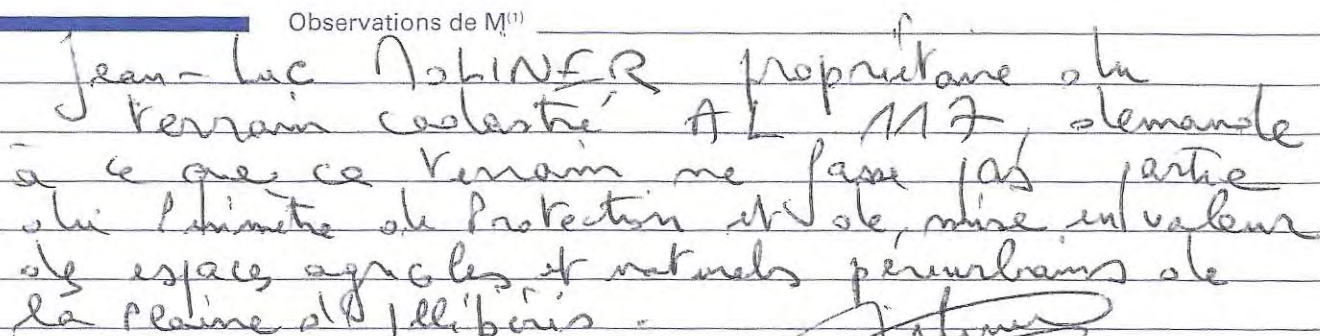 Observations de M(1)
Jean-Luc MOLINER propriétaire du
terrain cadastré AL 117, demande
à ce que ce terrain ne fasse pas partie
du Périmètre de Protection et de mise en valeur
des espaces agricoles et naturels périurbains de
la plaine d'Illibéris.